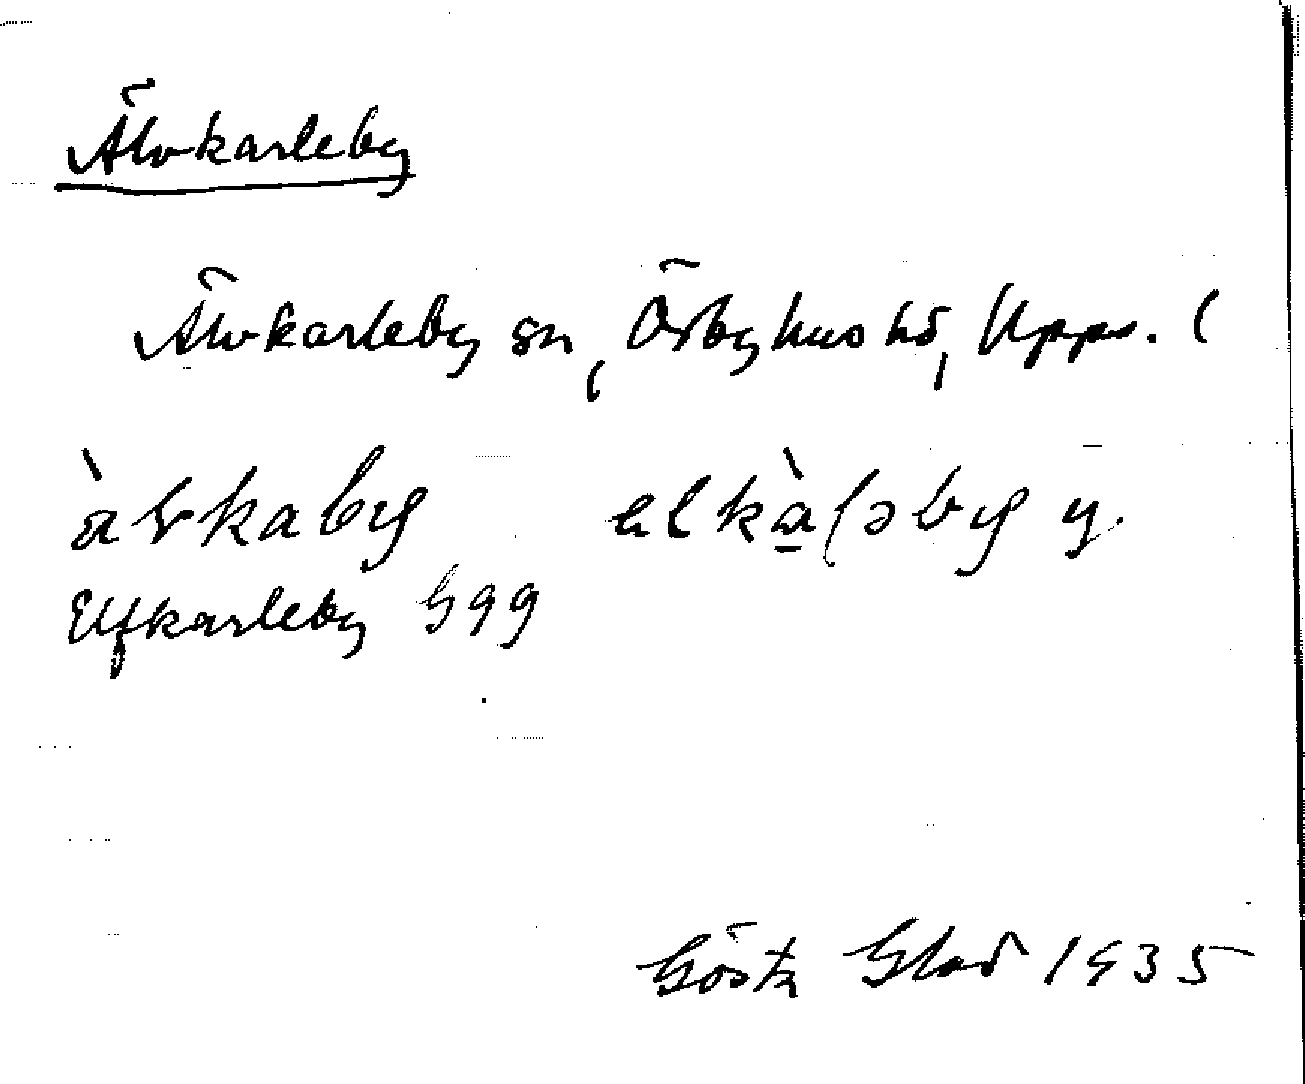 Älvkarleby
Älvkarleby sn, Örbyhus hd, Upps. l
àvkaby elkàḷəby y.
Elfkarleby G99
Gösta 1935